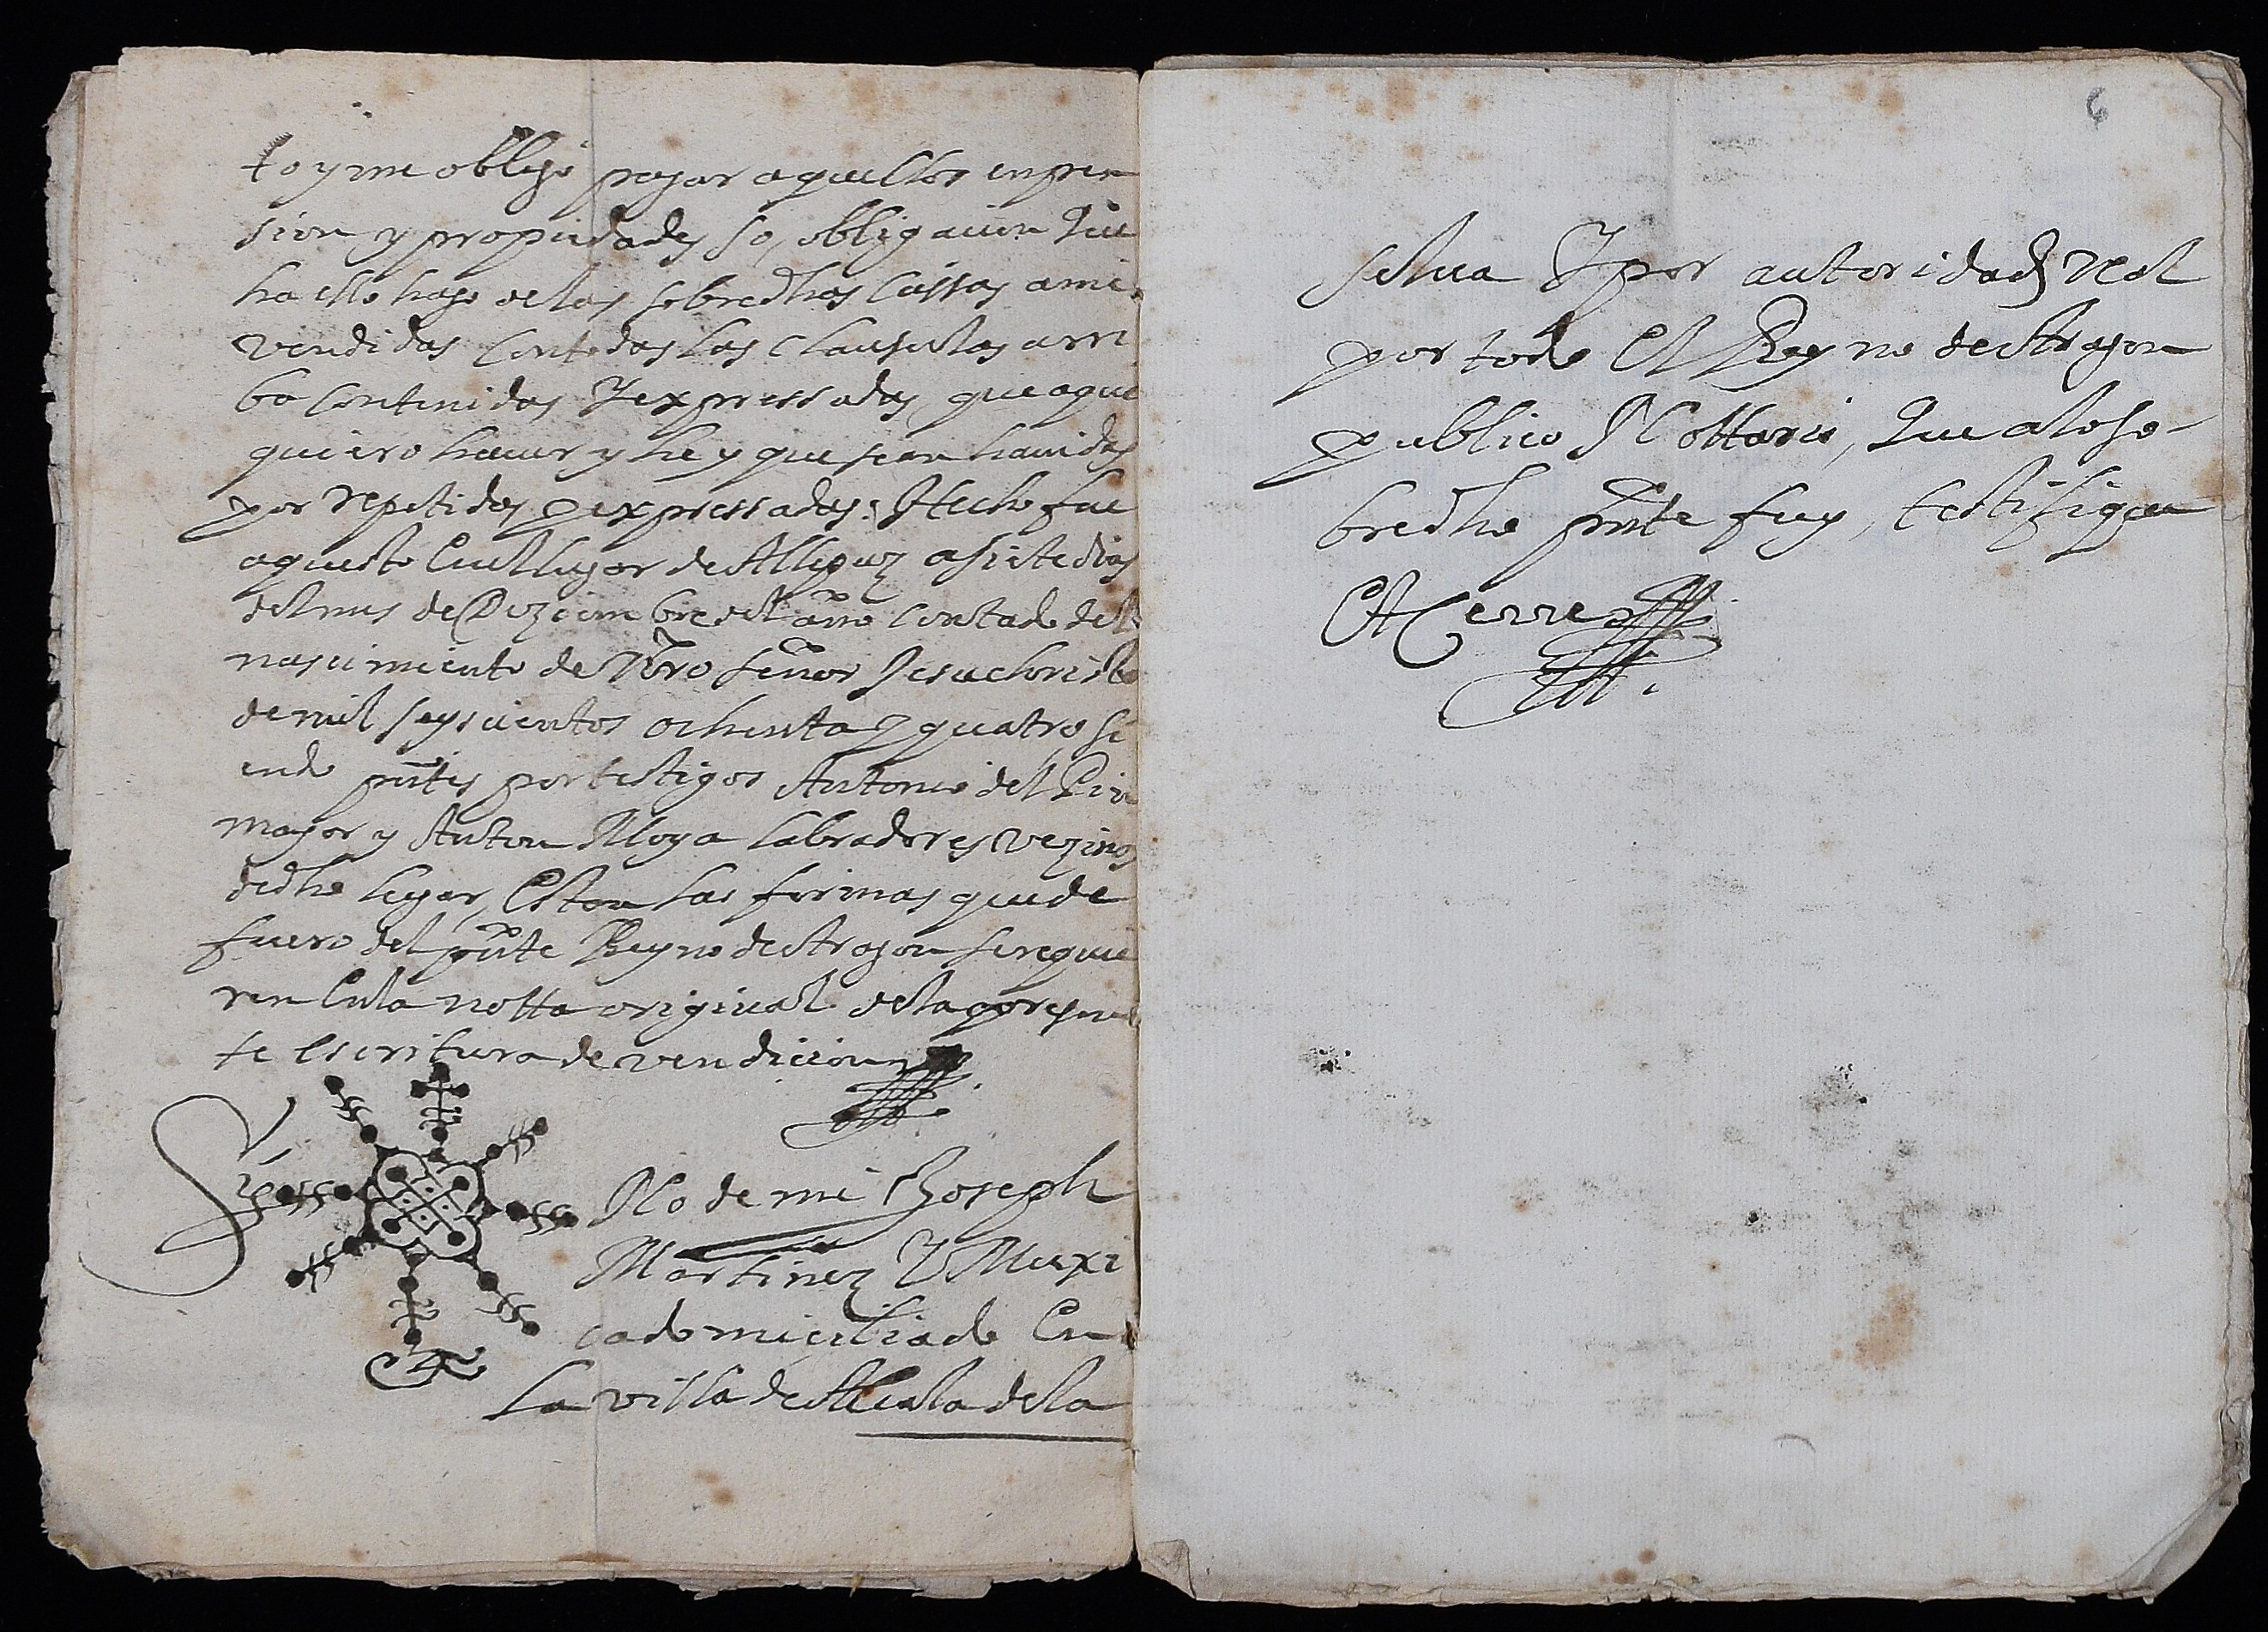 to y me obligo pagar aquellos en pen
sion y propiedades so, obligacion que
ha ello hago de las sobredhas cassas a mi
vendidas con todas las clausulas arri
ba contenidas Y expressadas que aqui
quiero haver y he y que sean havidas
por repetidas y expressadas: Hecho fue
aquesto en el lugar de Allepuz a siete dias
del mes de Deziembre del año contado del
nascimiento de Nro señor Jesuchristo
de mil seyscientos ochenta y quatro si
endo pntes por testigos Antonio del
mayor y Anton Moya labradores vezinos
de dho lugar, Estan las firmas que de
fuero del pnte Reyno de Aragon se requie
ren en la notta original de la presen
te escritura de vendicion
Sig no de mi Joseph
Martinez Y Muxi
ca domiciliado en
la villa de Alcala de la
6
selva Y por autoridad Real
por todo el Reyno de Aragon
publico Nottario, que a lo so-
bredho pnte fuy, testifique
et Cerre